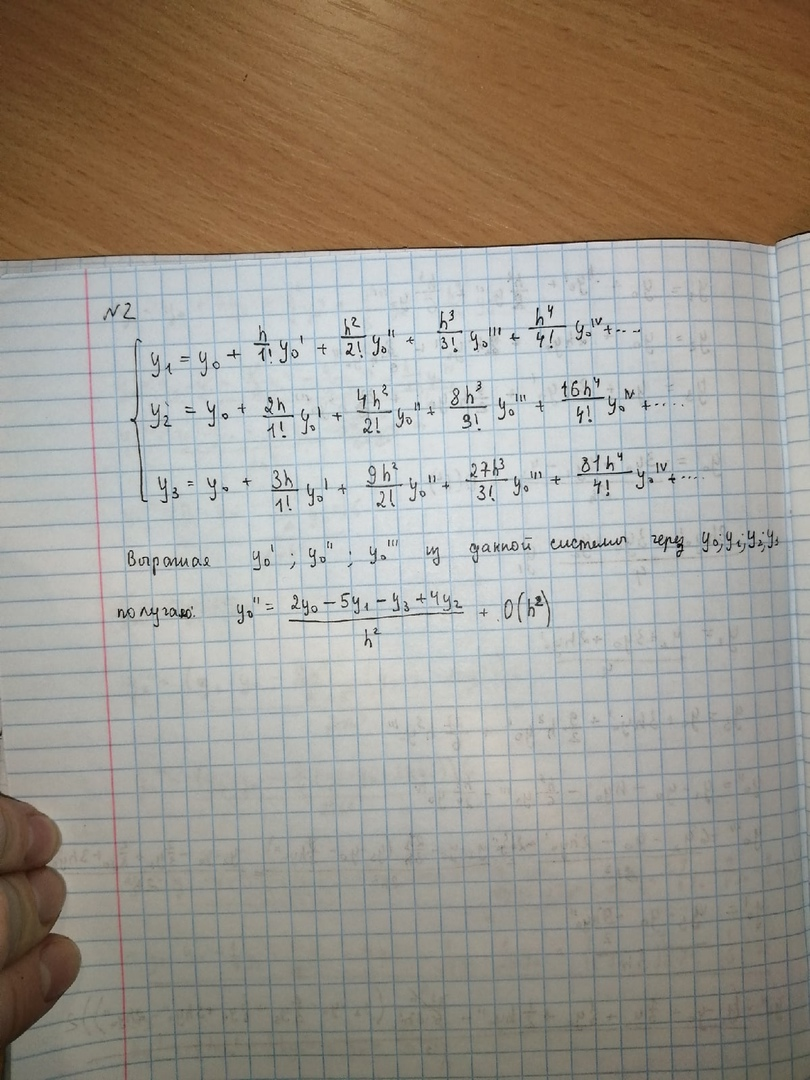 №2
y₁ = y₀ + h/1! y₀' + h²/2! y₀'' + h³/3! y₀''' + h⁴/4! y₀ᴵⱽ + ....
y₂ = y₀ + 2h/1! y₀' + 4h²/2! y₀'' + 8h³/3! y₀''' + 16h⁴/4! y₀ᴵⱽ + .....
y₃ = y₀ + 3h/1! y₀' + 9h²/2! y₀'' + 27h³/3! y₀''' + 81h⁴/4! y₀ᴵⱽ + .....
Выражая y₀' ; y₀'' ; y₀''' из данной системы через y₀; y₁; y₂; y₃
получаю: y₀'' = (2y₀ - 5y₁ - y₃ + 4y₂)/h² + O(h²)